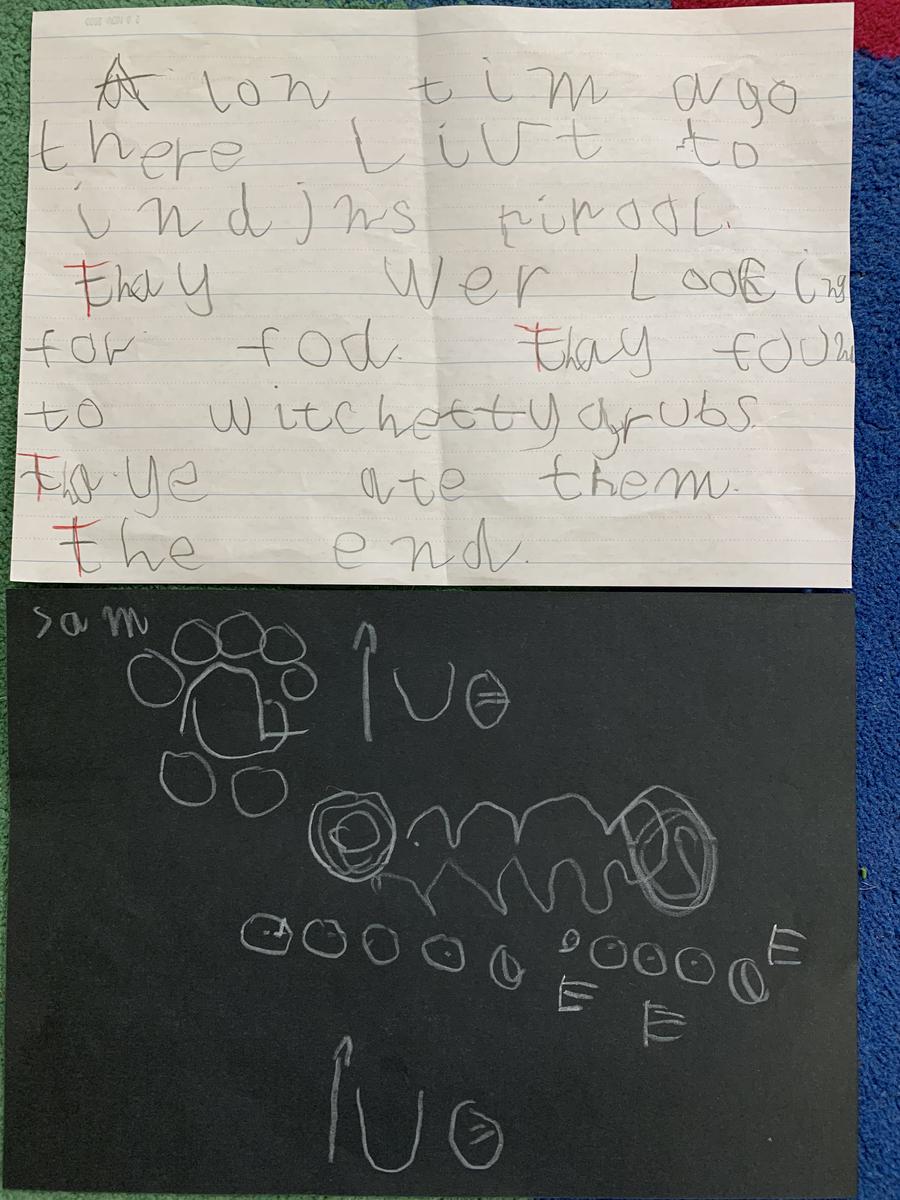 A lon tim ago
there Livt to
indjns pipool.
Thay wer Looking
for fod. Thay foun
to witchettygrubs.
Thaye ate them.
The end.
sam
E
E
E